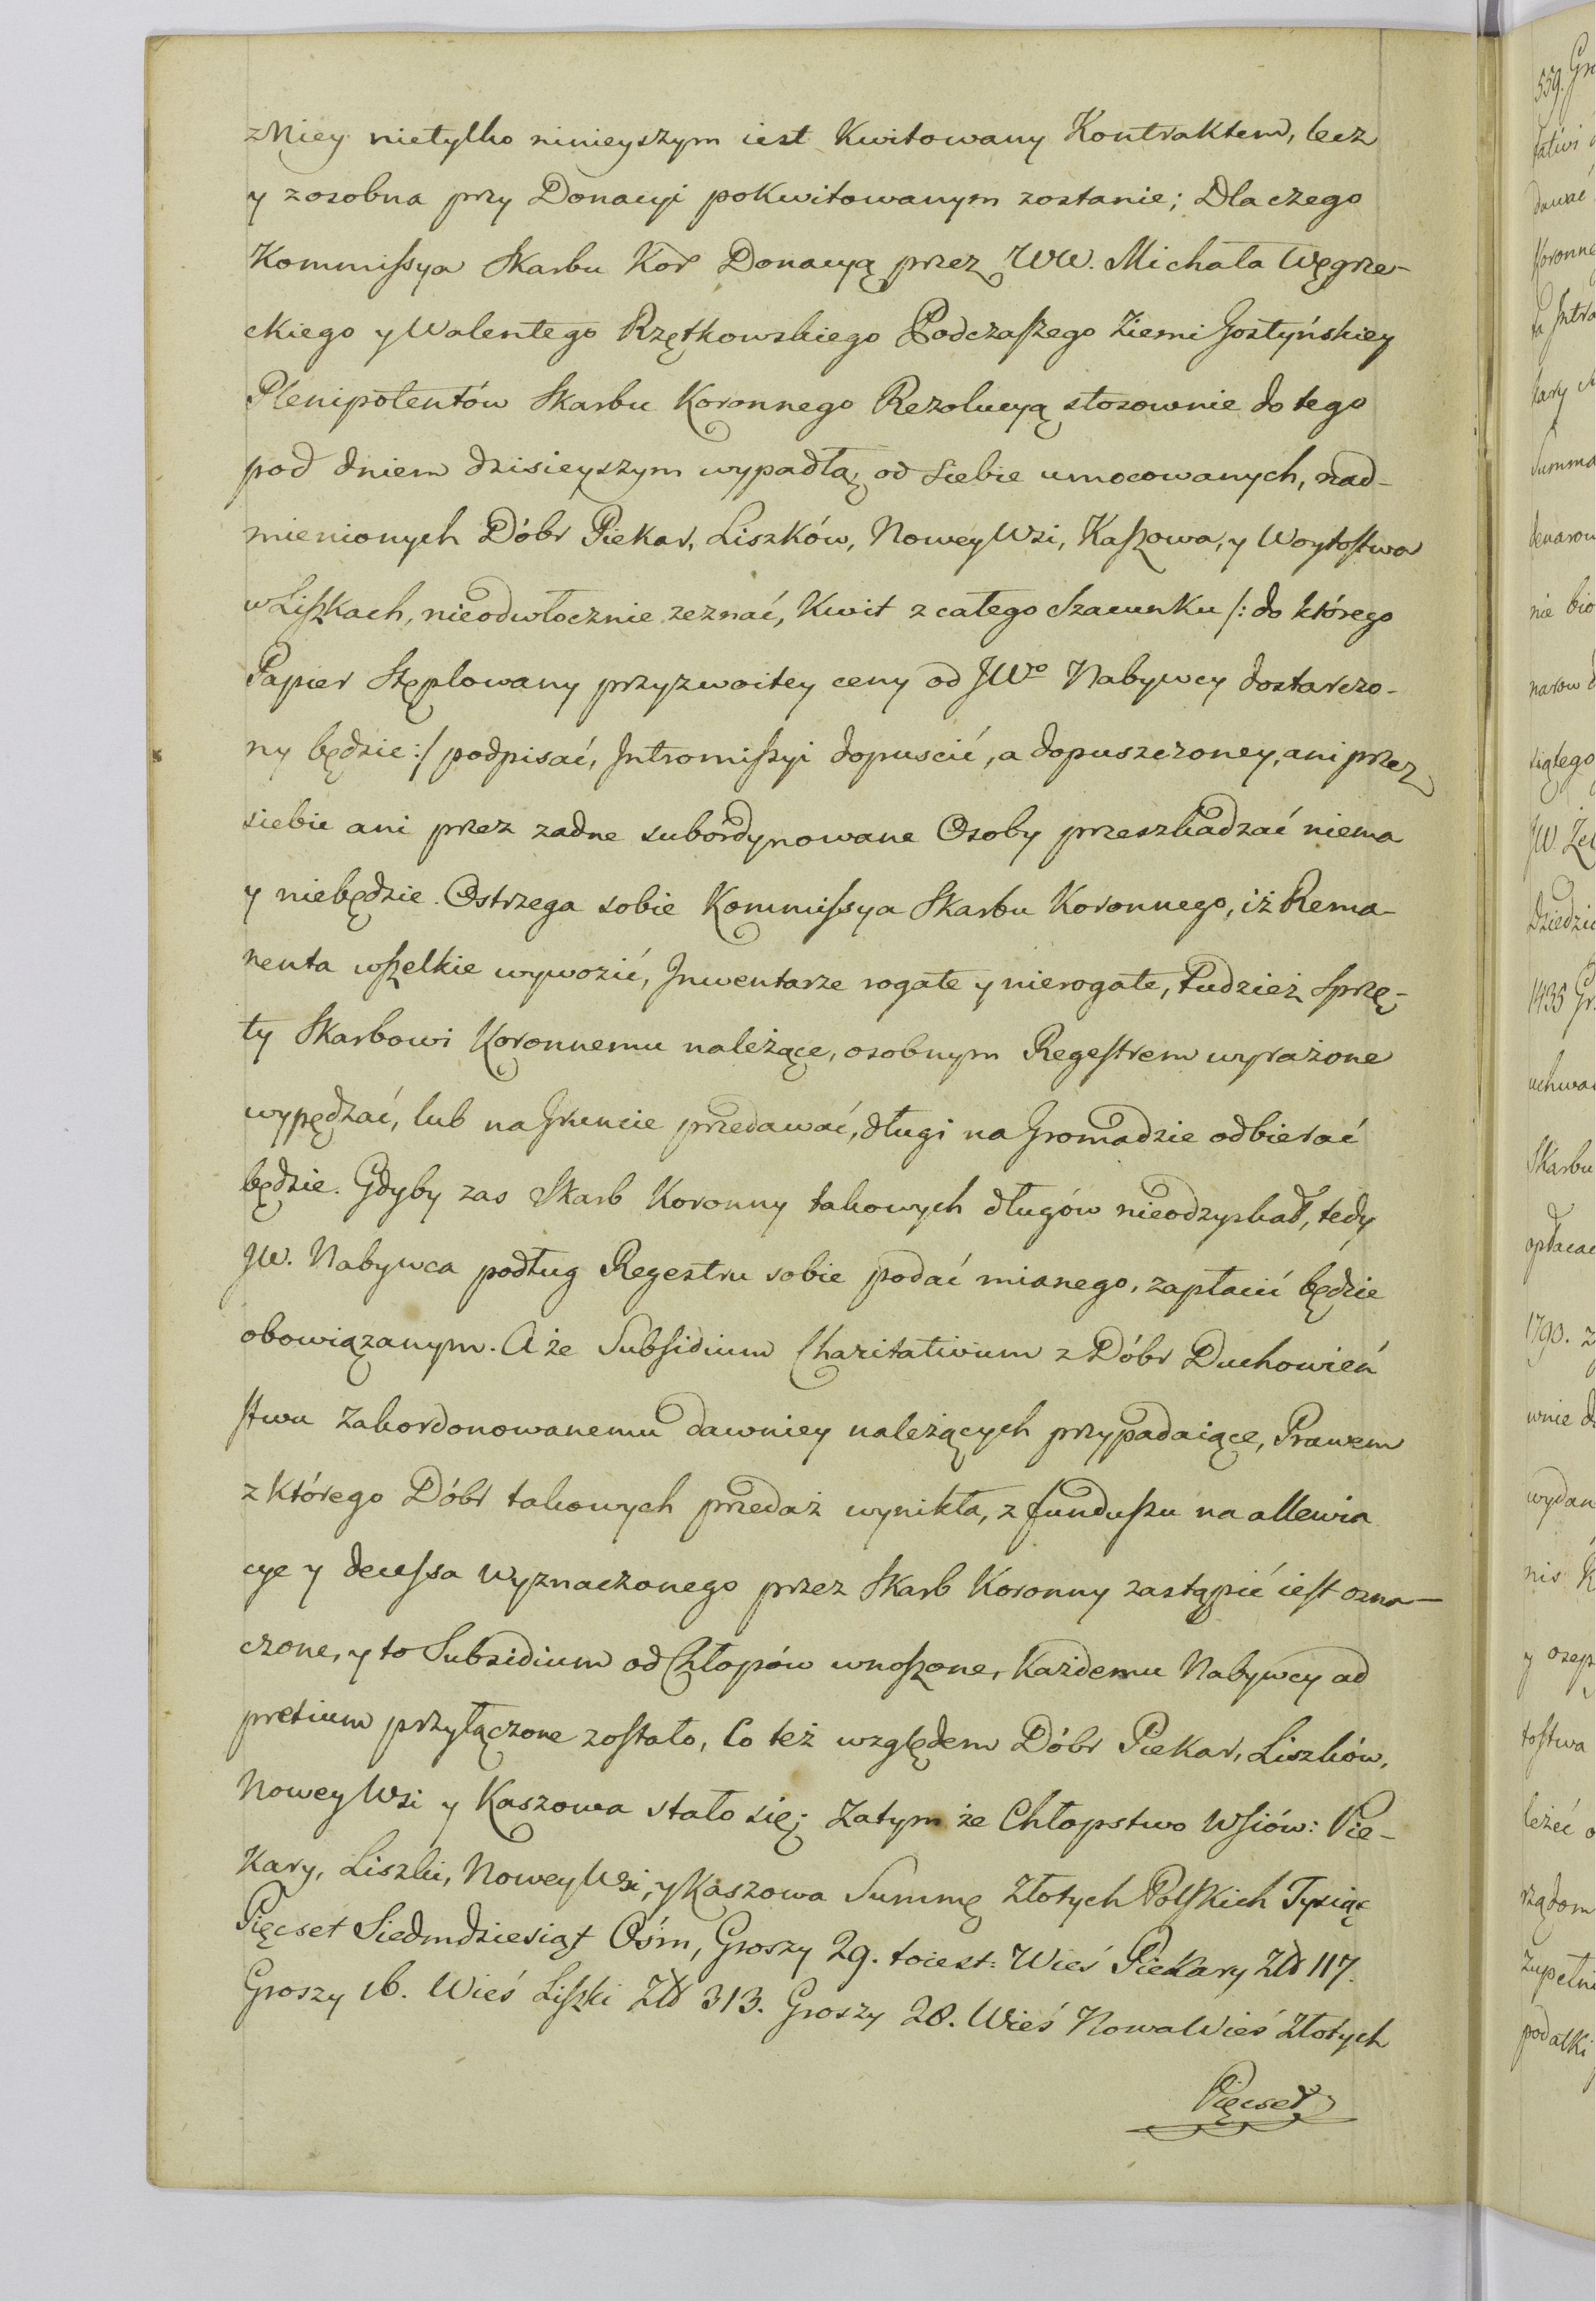 z Niey nietylko ninieyszym iest Kwitowany Kontraktem, lecz
y zosobna przy Donacyi pokwitowanym zostanie; Dlaczego
Kommissya Skarbu Kor Donacyą przez WW. Michała Węgrze-
ckiego y Walentego Rzętkowskiego Podczaszego Ziemi Gostyńskiey
Plenipotentów Skarbu Koronnego Rezolucyą stosownie do tego
pod dniem dzisieyszym wypadłą od siebie umocowanych, nad-
mienionych Dóbr Piekar, Liszków, Nowey Wsi, Kaszowa, y Woytostwa
w Liszkach, nieodwłocznie zeznać, Kwit z całego Szacunku /: do którego
Papier Stęplowany przyzwoitey ceny od JWo Nabywcy dostarczo-
ny będzie :/ podpisać, Intromissyi dopuscić, a dopuszczoney, ani przez
siebie ani przez zadne subordynowane Osoby przeszkadzać niema
y niebędzie. Ostrzega sobie Kommissya Skarbu Koronnego, iż Rema-
nenta wszelkie wywozić, Inwentarze rogate y nierogate, tudzież Sprzę-
ty Skarbowi Koronnemu należące, osobnym Regestrem wyrażone
wypędzać, lub na Gruncie przedawać, długi na Gromadzie odbierać
będzie. Gdyby zas Skarb Koronny takowych długów nieodzyskał, tedy
JW. Nabywca podług Regestru sobie podać mianego, zapłacić będzie
obowiązanym. A że Subsidium Charitativum z Dóbr Duchowień
stwu Zakordonowanemu dawniey należących przypadaiące, Prawem
z którego Dóbr takowych przedaż wynikła, z funduszu na allewia
cye y decessa wyznaczonego przez Skarb Koronny zastąpić iest ozna-
czone, y to Subsidium od Chłopów wnoszone, Każdemu Nabywcy ad
pretium przyłączone zostało, Co też względem Dóbr Piekar, Liszków,
Nowey Wsi y Kaszowa stało się; Zatym że Chłopstwo Wsiów: Pie-
kary, Liszki, Nowey Wsi, y Kaszowa Summę Złotych Polskich Tysiąc
Pięcset Siedmdziesiąt Ośm, Groszy 29. toiest: Wieś Piekary Zł 117.
Groszy 16. Wieś Liszki Zł 313. Groszy 28. Wieś Nowa Wieś Złotych
Pięcset
559. Gr
dawać
Summa
nie
1435 Gr
Skarbu
1790. z
wnie
tostwa
leżeć
podatki